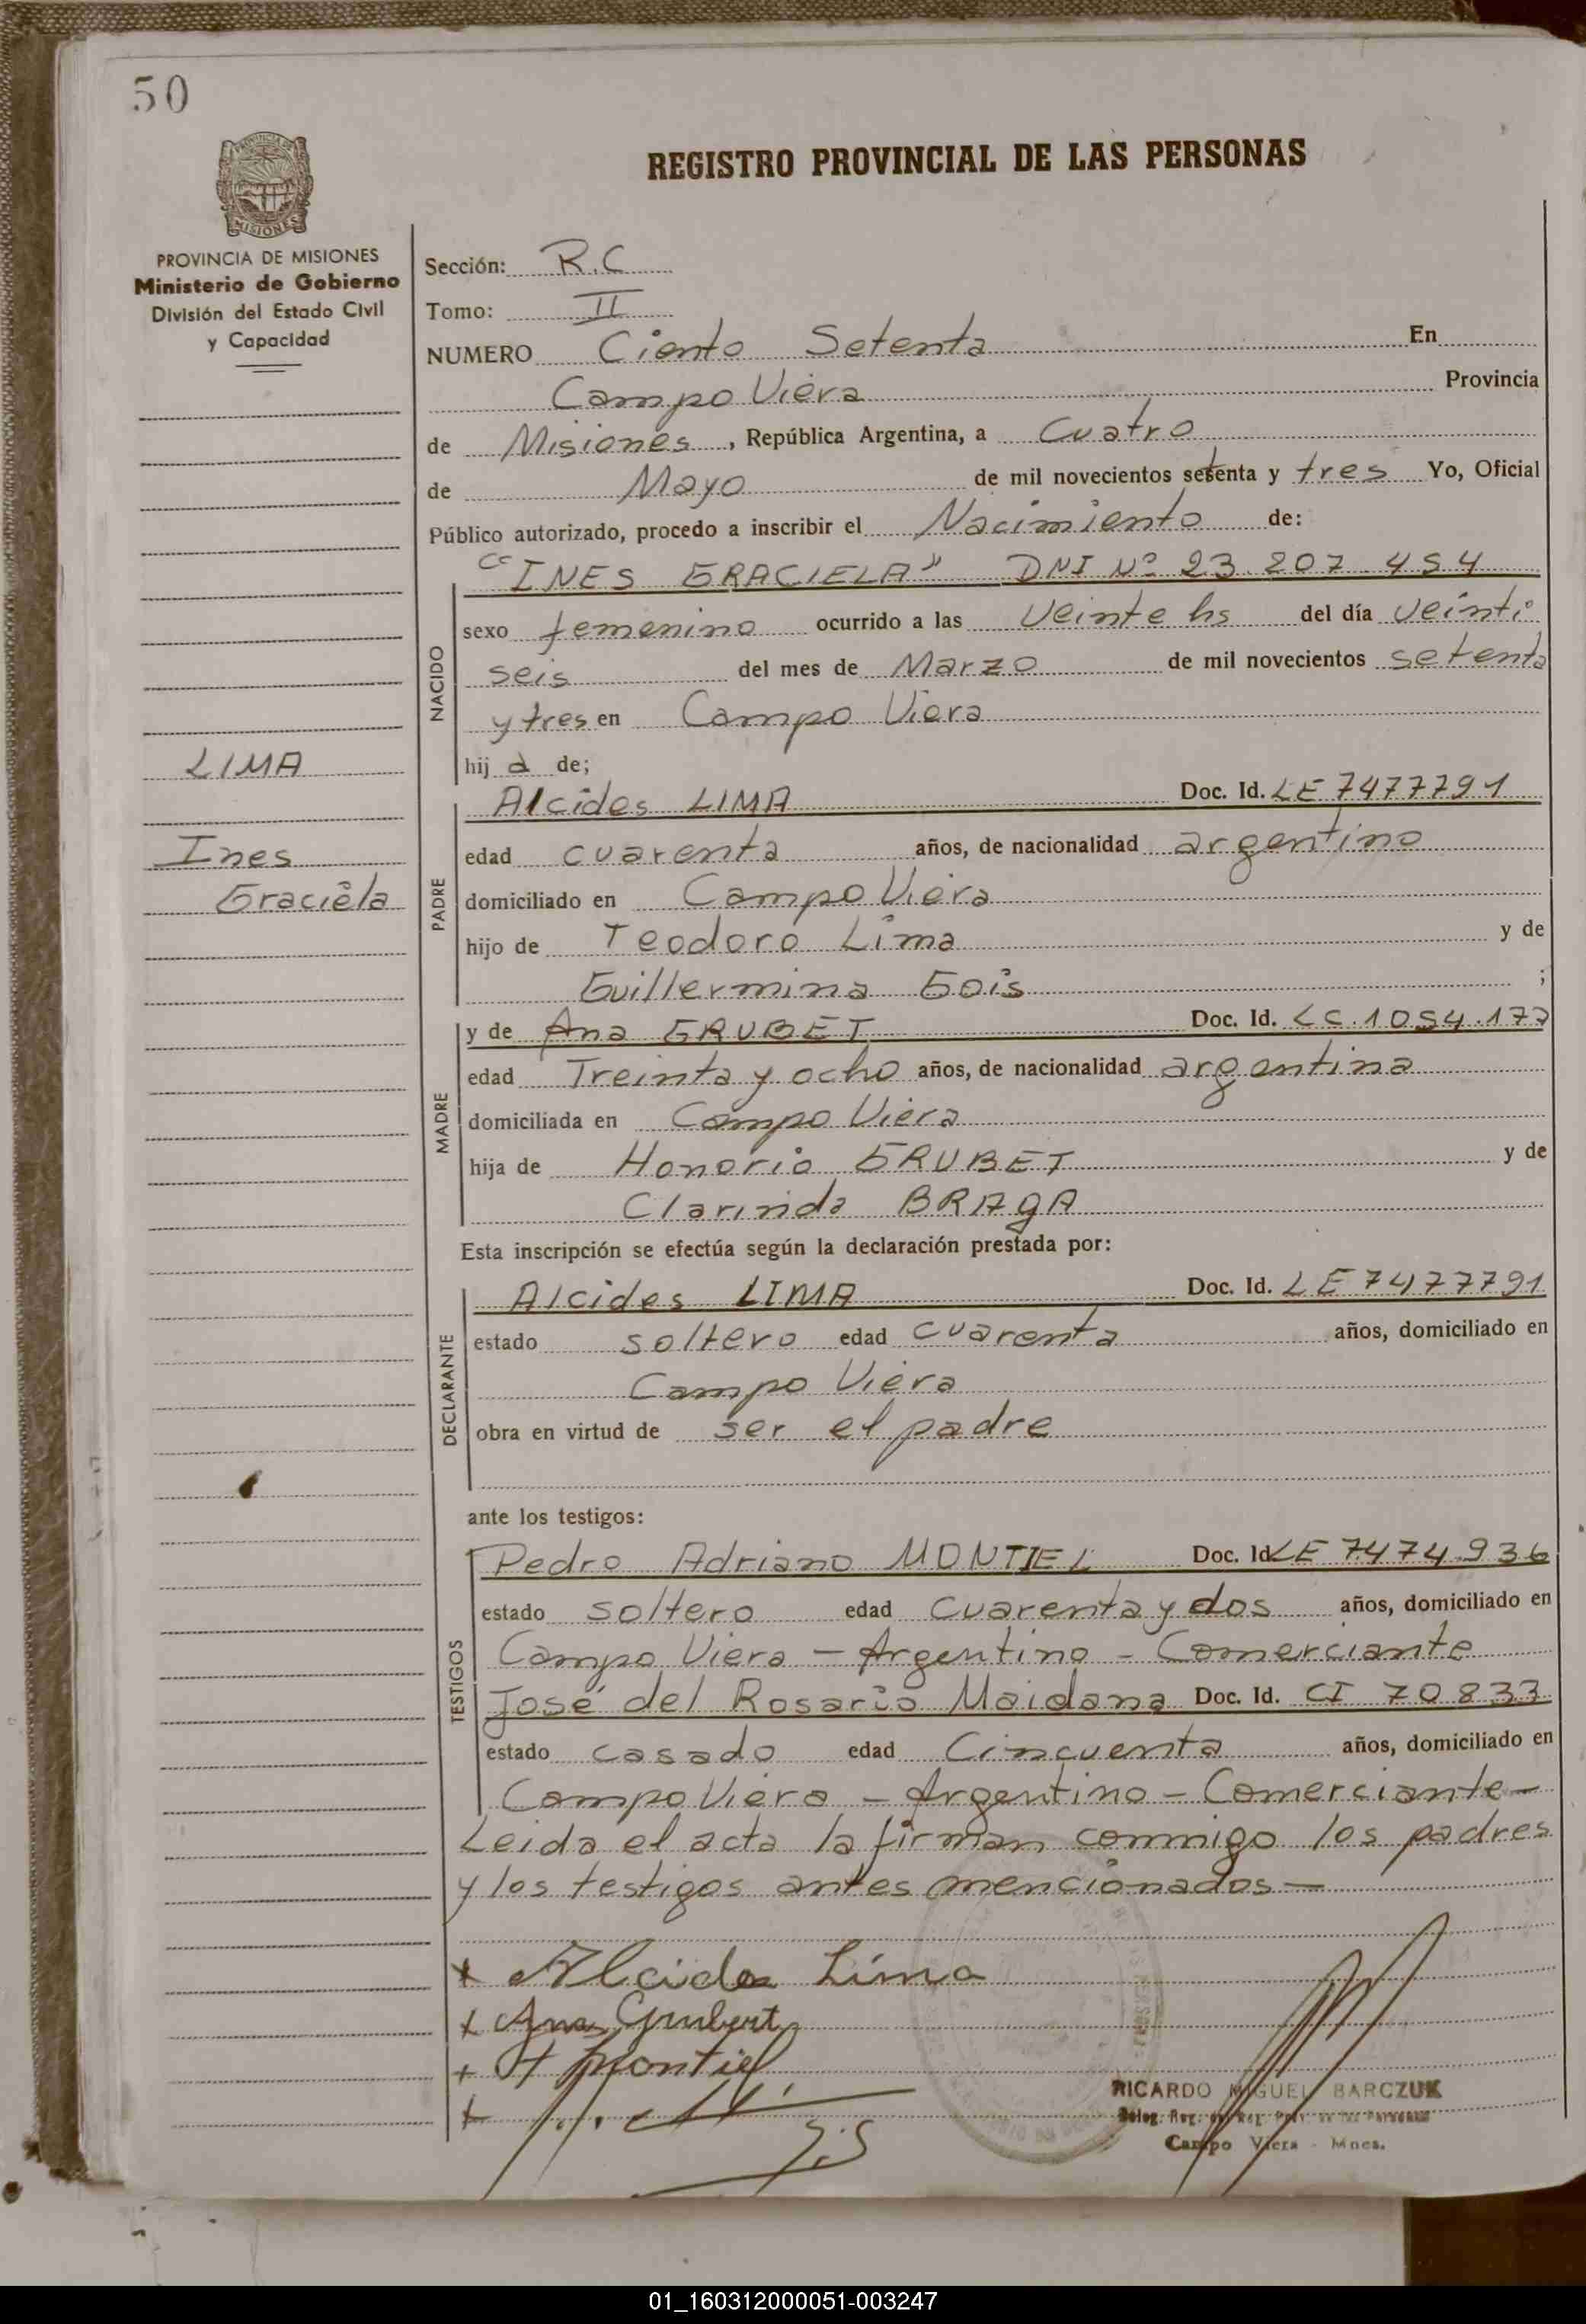 50
REGISTRO PROVINCIAL DE LAS PERSONAS
PROVINCIA DE MISIONES
MISIONES
PROVINCIA DE MISIONES
Ministerio de Gobierno
División del Estado Civil
y Capacidad
Sección: R.C
Tomo: II
NUMERO Ciento Setenta En
Campo Viera Provincia
de Misiones, República Argentina, a Cuatro
de Mayo de mil novecientos setenta y tres Yo, Oficial
Público autorizado, procedo a inscribir el Nacimiento de:
NACIDO
"INES GRACIELA" DNI Nº 23.207.454
sexo femenino ocurrido a las Veinte hs del día veinti
seis del mes de Marzo de mil novecientos setenta
y tres en Campo Viera
hij a de;
LIMA
Ines
Graciela
PADRE
Alcides LIMA Doc. Id. LE 7477791
edad cuarenta años, de nacionalidad argentino
domiciliado en Campo Viera
hijo de Teodoro Lima y de
Guillermina Gois ;
MADRE
y de Ana GRUBET Doc. Id. LC.1054.177
edad Treinta y ocho años, de nacionalidad argentina
domiciliada en Campo Viera
hija de Honorio GRUBET y de
Clarinda BRAgA
Esta inscripción se efectúa según la declaración prestada por:
DECLARANTE
Alcides LIMA Doc. Id. LE 7477791
estado soltero edad cuarenta años, domiciliado en
Campo Viera
obra en virtud de ser el padre
ante los testigos:
TESTIGOS
Pedro Adriano MONTIEL Doc. Id LE 7474.936
estado soltero edad cuarenta y dos años, domiciliado en
Campo Viera - Argentino - Comerciante
José del Rosario Maidana Doc. Id. CI 70833
estado casado edad Cincuenta años, domiciliado en
Campo Viera - Argentino - Comerciante -
Leida el acta la firman conmigo los padres
y los testigos antes mencionados -
x Alcides Lima
x Ana Grubert
+ Montiel
RICARDO MIGUEL BARCZUK
Campo Viera - Mnes.
01_160312000051-003247